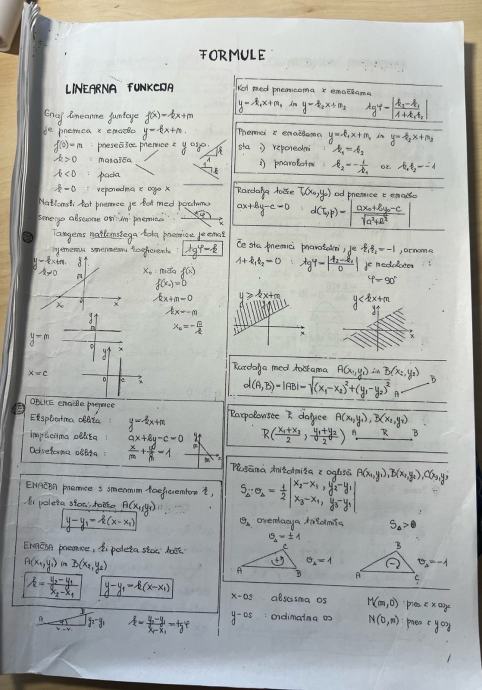 FORMULE
LINEARNA FUNKCIJA
Graf linearne funkcije f(x)=kx+m
je premica z enačbo y=kx+m.
f(0)=m : presečišče premice z y osjo.
k>0 : narašča
k<0 : pada
k=0 : vzporedna z osjo x
Naklonski kot premice je kot med pozitivno
smerjo abscisne osi in premico
Tangens naklonskega kota premice je enak
njenemu smernemu koeficientu tgφ=k
y=kx+m
k≠0
x₀ : ničla f(x)
f(x₀)=0
kx+m=0
kx=-m
x₀=-m/k
y=m
x=c
OBLIKE enačbe premice
Eksplicitna oblika : y=kx+m
Implicitna oblika : ax+by-c=0
Odsekovna oblika : x/m+y/n=1
ENAČBA premice s smernim koeficientom k,
ki poteka skozi točko A(x₁,y₁)
y-y₁=k(x-x₁)
ENAČBA premice, ki poteka skozi točki
A(x₁,y₁) in B(x₂,y₂)
k=y₂-y₁/x₂-x₁ y-y₁=k(x-x₁)
A B y₂-y₁ k=y₂-y₁/x₂-x₁=tgφ
Kot med premicama z enačbama
y=k₁x+m₁ in y=k₂x+m₂ tgφ=|k₂-k₁/1+k₁k₂|
Premici z enačbama y=k₁x+m₁ in y=k₂x+m₂
sta i) vzporedni : k₁=k₂
ii) pravokotni : k₂=-1/k₁ oz. k₁k₂=-1
Razdalja točke T(x₀,y₀) od premice z enačbo
ax+by-c=0 d(T,p)=|ax₀+by₀-c/√a²+b²|
Če sta premici pravokotni, je k₁k₂=-1, oziroma
1+k₁k₂=0 : tgφ=|k₂-k₁/0| je nedoločen
φ=90°
y>kx+m y<kx+m
Razdalja med točkama A(x₁,y₁) in B(x₂,y₂)
d(A,B)=|AB|=√(x₁-x₂)²+(y₁-y₂)² A B
Razpolovišče R daljice A(x₁,y₁), B(x₂,y₂)
R(x₁+x₂/2, y₁+y₂/2) A R B
Ploščina trikotnika z oglišči A(x₁,y₁),B(x₂,y₂),C(x₃,y₃)
S△·σ△=1/2|x₂-x₁, y₂-y₁
x₃-x₁, y₃-y₁|
σ△ orientacija trikotnika S△>0
σ△=±1
A B C + σ△=1 A B C - σ△=-1
x-os abscisna os M(m,0): pres z x osjo
y-os : ordinatna os N(0,n): pres z y osjo
1